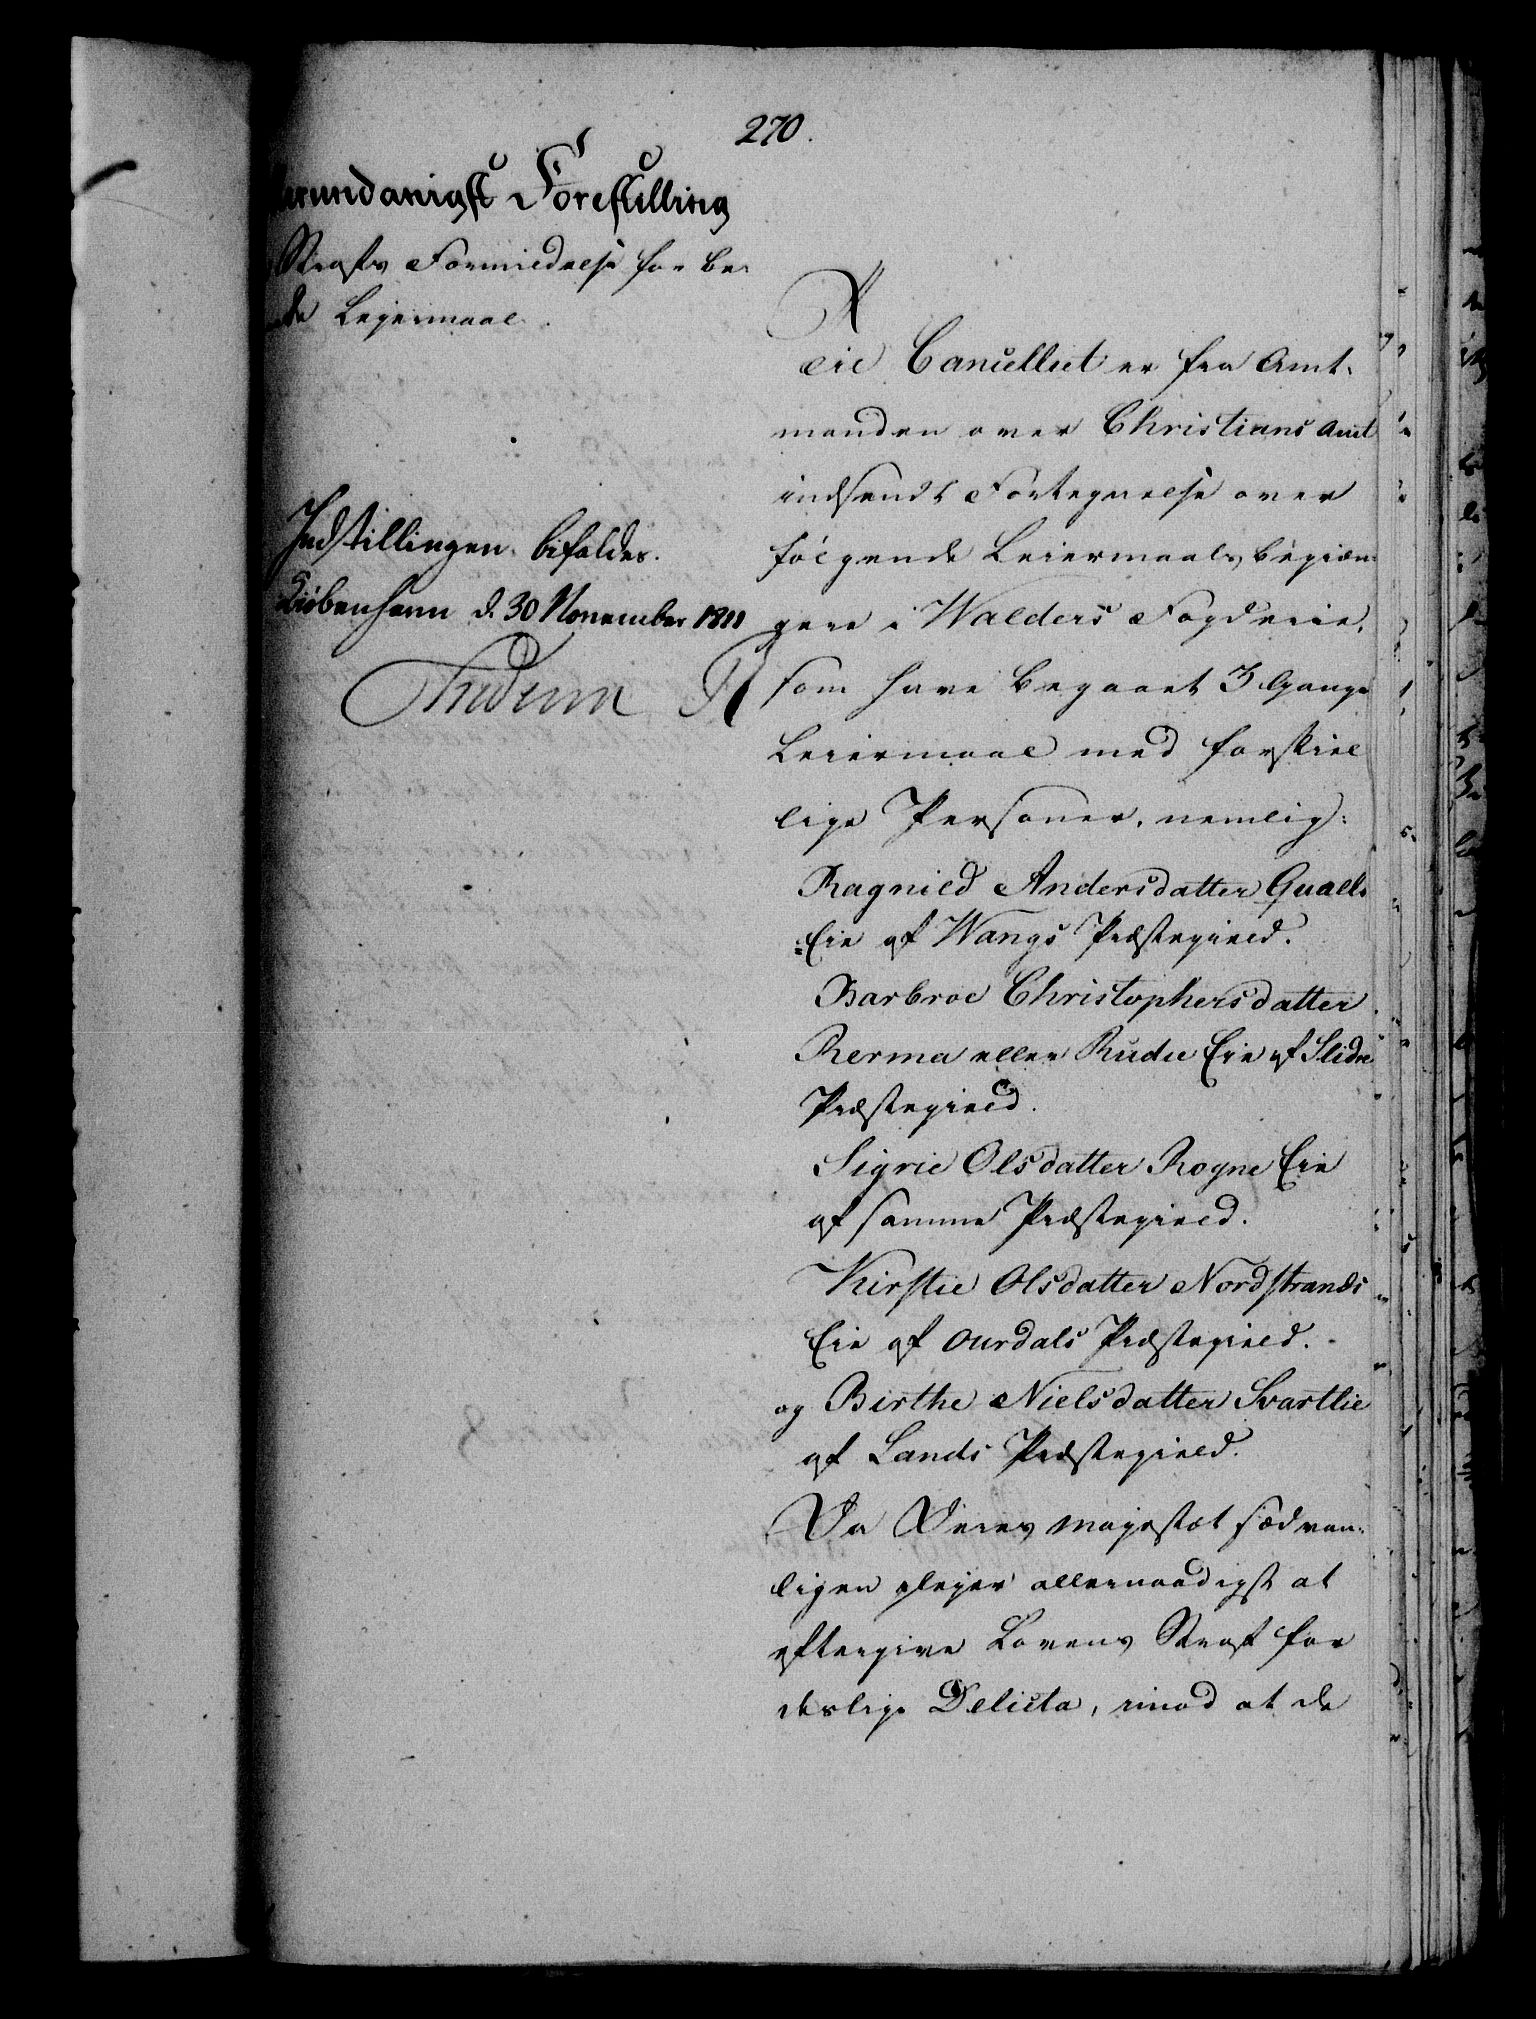 270.
Forestilling
Straffs Formildelse for be-
Lejermaal.
Indstillingen bifaldes.
Kiöbenhavn d. 30 November 1811
Friderich R
Til Cancelliet er fra Amt-
manden over Christians Amt
indsendt Fortegnelse over
følgende Leiermaals begiæn-
gere i Walders Fogderie,
som have begaaet 3 Gange
Leiermaal med forskiel
lige Personer, nemlig:
Ragnild Andersdatter Qualls
Eie af Wangs Præstegield.
Barbroe Christophersdatter
Rerma eller Rudie Eie af Slidre
Præstegield.
Sigrie Olsdatter Rogne Eie
af samme Præstegield.
Kirstie Olsdatter Nordstrands
Eie af Ourdals Præstegield.
og Birthe Nielsdatter Svartlie
af Lands Præstegield.
Da Deres Majestæt sædvan-
ligen plejer allernaadigst at
eftergive Lovens Straf for
deslige Delicta, imod at de